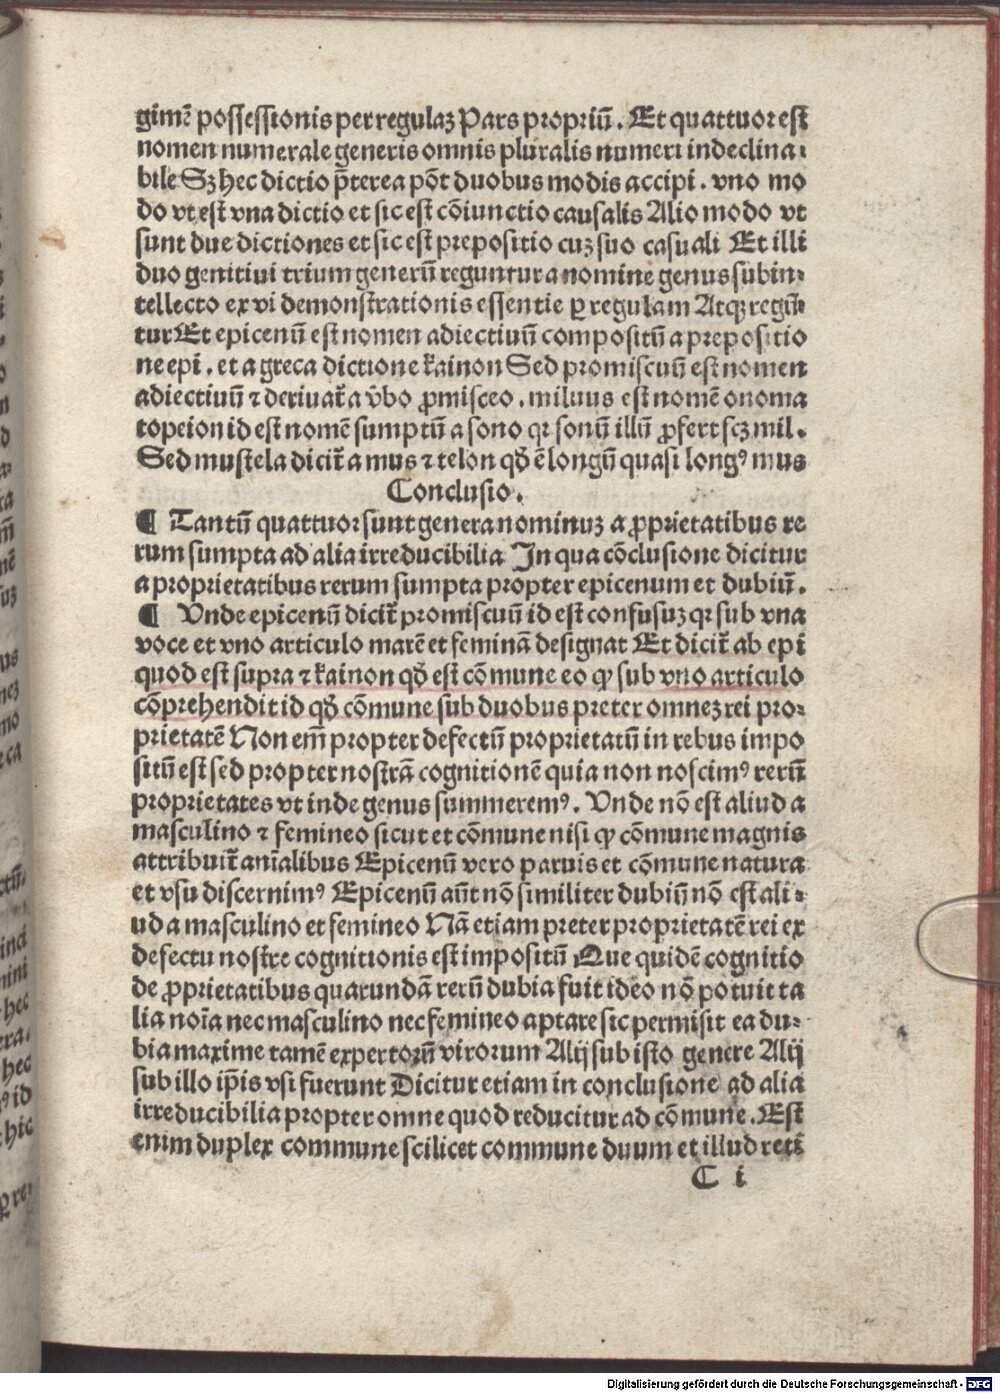 gimē possessionis per regulaꝫ Pars propriū. Et quattuor est
nomen numerale generis omnis pluralis numeri indeclina⸗
bile Sꝫ hec dictio p̄terea pōt duobus modis accipi. vno mo
do vt est vna dictio et sic est cōiunctio causalis Alio modo vt
sunt due dictiones et sic est prepositio cuꝫ suo casuali Et illi
duo genitiui trium generū reguntur a nomine genus subin⸗
tellecto ex vi demonstrationis essentie ꝑ regulam Atqꝫ regūt
tur Et epicenū est nomen adiectiuū compositū a prepositio
ne epi. et a greca dictione kainon Sed promiscuū est nomen
adiectiuū ⁊ deriuat̄ a v̄bo ꝓmisceo. miluus est nomē onoma
topeion id est nomē sumptū a sono qꝛ sonū illū ꝓfert scꝫ mil.
Sed mustela dicit̄ a mus ⁊ telon qd̄ ē longū quasi longꝰ mus
Conclusio.
¶ Tantū quattuor sunt genera nominuꝫ a ꝓprietatibus re
rum sumpta ad alia irreducibilia In qua cōclusione dicitur
a proprietatibus rerum sumpta propter epicenum et dubiū.
¶ Vnde epicenū dicit̄ promiscuū id est confusuꝫ qꝛ sub vna
voce et vno articulo marē et feminā designat Et dicit̄ ab epi
quod est supra ⁊ kainon qd̄ est cōmune eo ꝙ sub vno articulo
cōprehendit id qd̄ cōmune sub duobus preter omneꝫ rei pro⸗
prietatē Non em̄ propter defectū proprietatū in rebus impo
sitū est sed propter nostrā cognitionē quia non noscimꝰ rerū
proprietates vt inde genus summeremꝰ. Vnde nō est aliud a
masculino ⁊ femineo sicut et cōmune nisi ꝙ cōmune magnis
attribuit̄ anīalibus Epicenū vero paruis et cōmune natura
et vsu discernimꝰ Epicenū aūt nō similiter dubiū nō est ali⸗
ud a masculino et femineo Nā etiam preter proprietatē rei ex
defectu nostre cognitionis est impositū Que quidē cognitio
de ꝓprietatibus quarundā rerū dubia fuit ideo nō potuit ta
lia noīa nec masculino nec femineo aptare sic permisit ea du⸗
bia maxime tamē expertorū virorum Alij sub isto genere Alij
sub illo ip̄is vsi fuerunt Dicitur etiam in conclusione ad alia
irreducibilia propter omne quod reducitur ad cōmune. Est
enim duplex commune scilicet commune duum et illud reti
C i
Digitalisierung gefördert durch die Deutsche Forschungsgemeinschaft - DFG